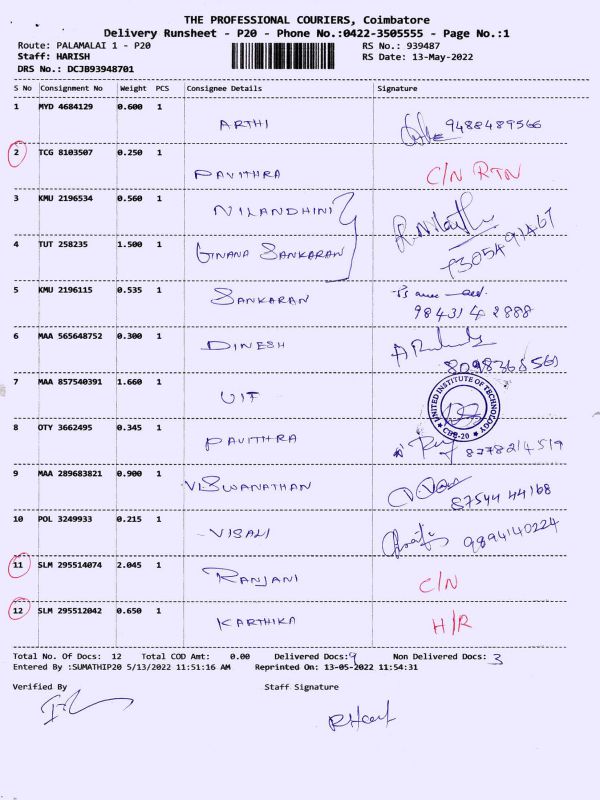 THE PROFESSIONAL COURIERS, Coimbatore
Delivery Runsheet - P20 - Phone No.:0422-3505555 - Page No.:1
Route: PALAMALAI 1 - P20 RS No.: 939487
Staff: HARISH RS Date: 13-May-2022
DRS No.: DCJB93948701
S No Consignment No Weight PCS Consignee Details Signature
1 MYD 4684129 0.600 1
ARTHI 9488489566
2 TCG 8103507 0.250 1
PAVITHRA C/N RTN
3 KMU 2196534 0.560 1
NILANDHINI
4 TUT 258235 1.500 1
GNANA SANKARAN 7305491467
5 KMU 2196115 0.535 1
SANKARAN 98431 42888
6 MAA 565648752 0.300 1
DINESH 8098368561
7 MAA 857540391 1.660 1
UIT UNITED INSTITUTE OF TECHNOLOGY CBE-20
8 OTY 3662495 0.345 1
PAVITHRA 8778214519
9 MAA 289683821 0.900 1
VISWANATHAN 87544 44168
10 POL 3249933 0.215 1
VISALI 9894140224
11 SLM 295514074 2.045 1
RANJANI C/N
12 SLM 295512042 0.650 1
KARTHIKA H/R
Total No. Of Docs: 12 Total COD Amt: 0.00 Delivered Docs: 9 Non Delivered Docs: 3
Entered By :SUMATHIP20 5/13/2022 11:51:16 AM Reprinted On: 13-05-2022 11:54:31
Verified By Staff Signature